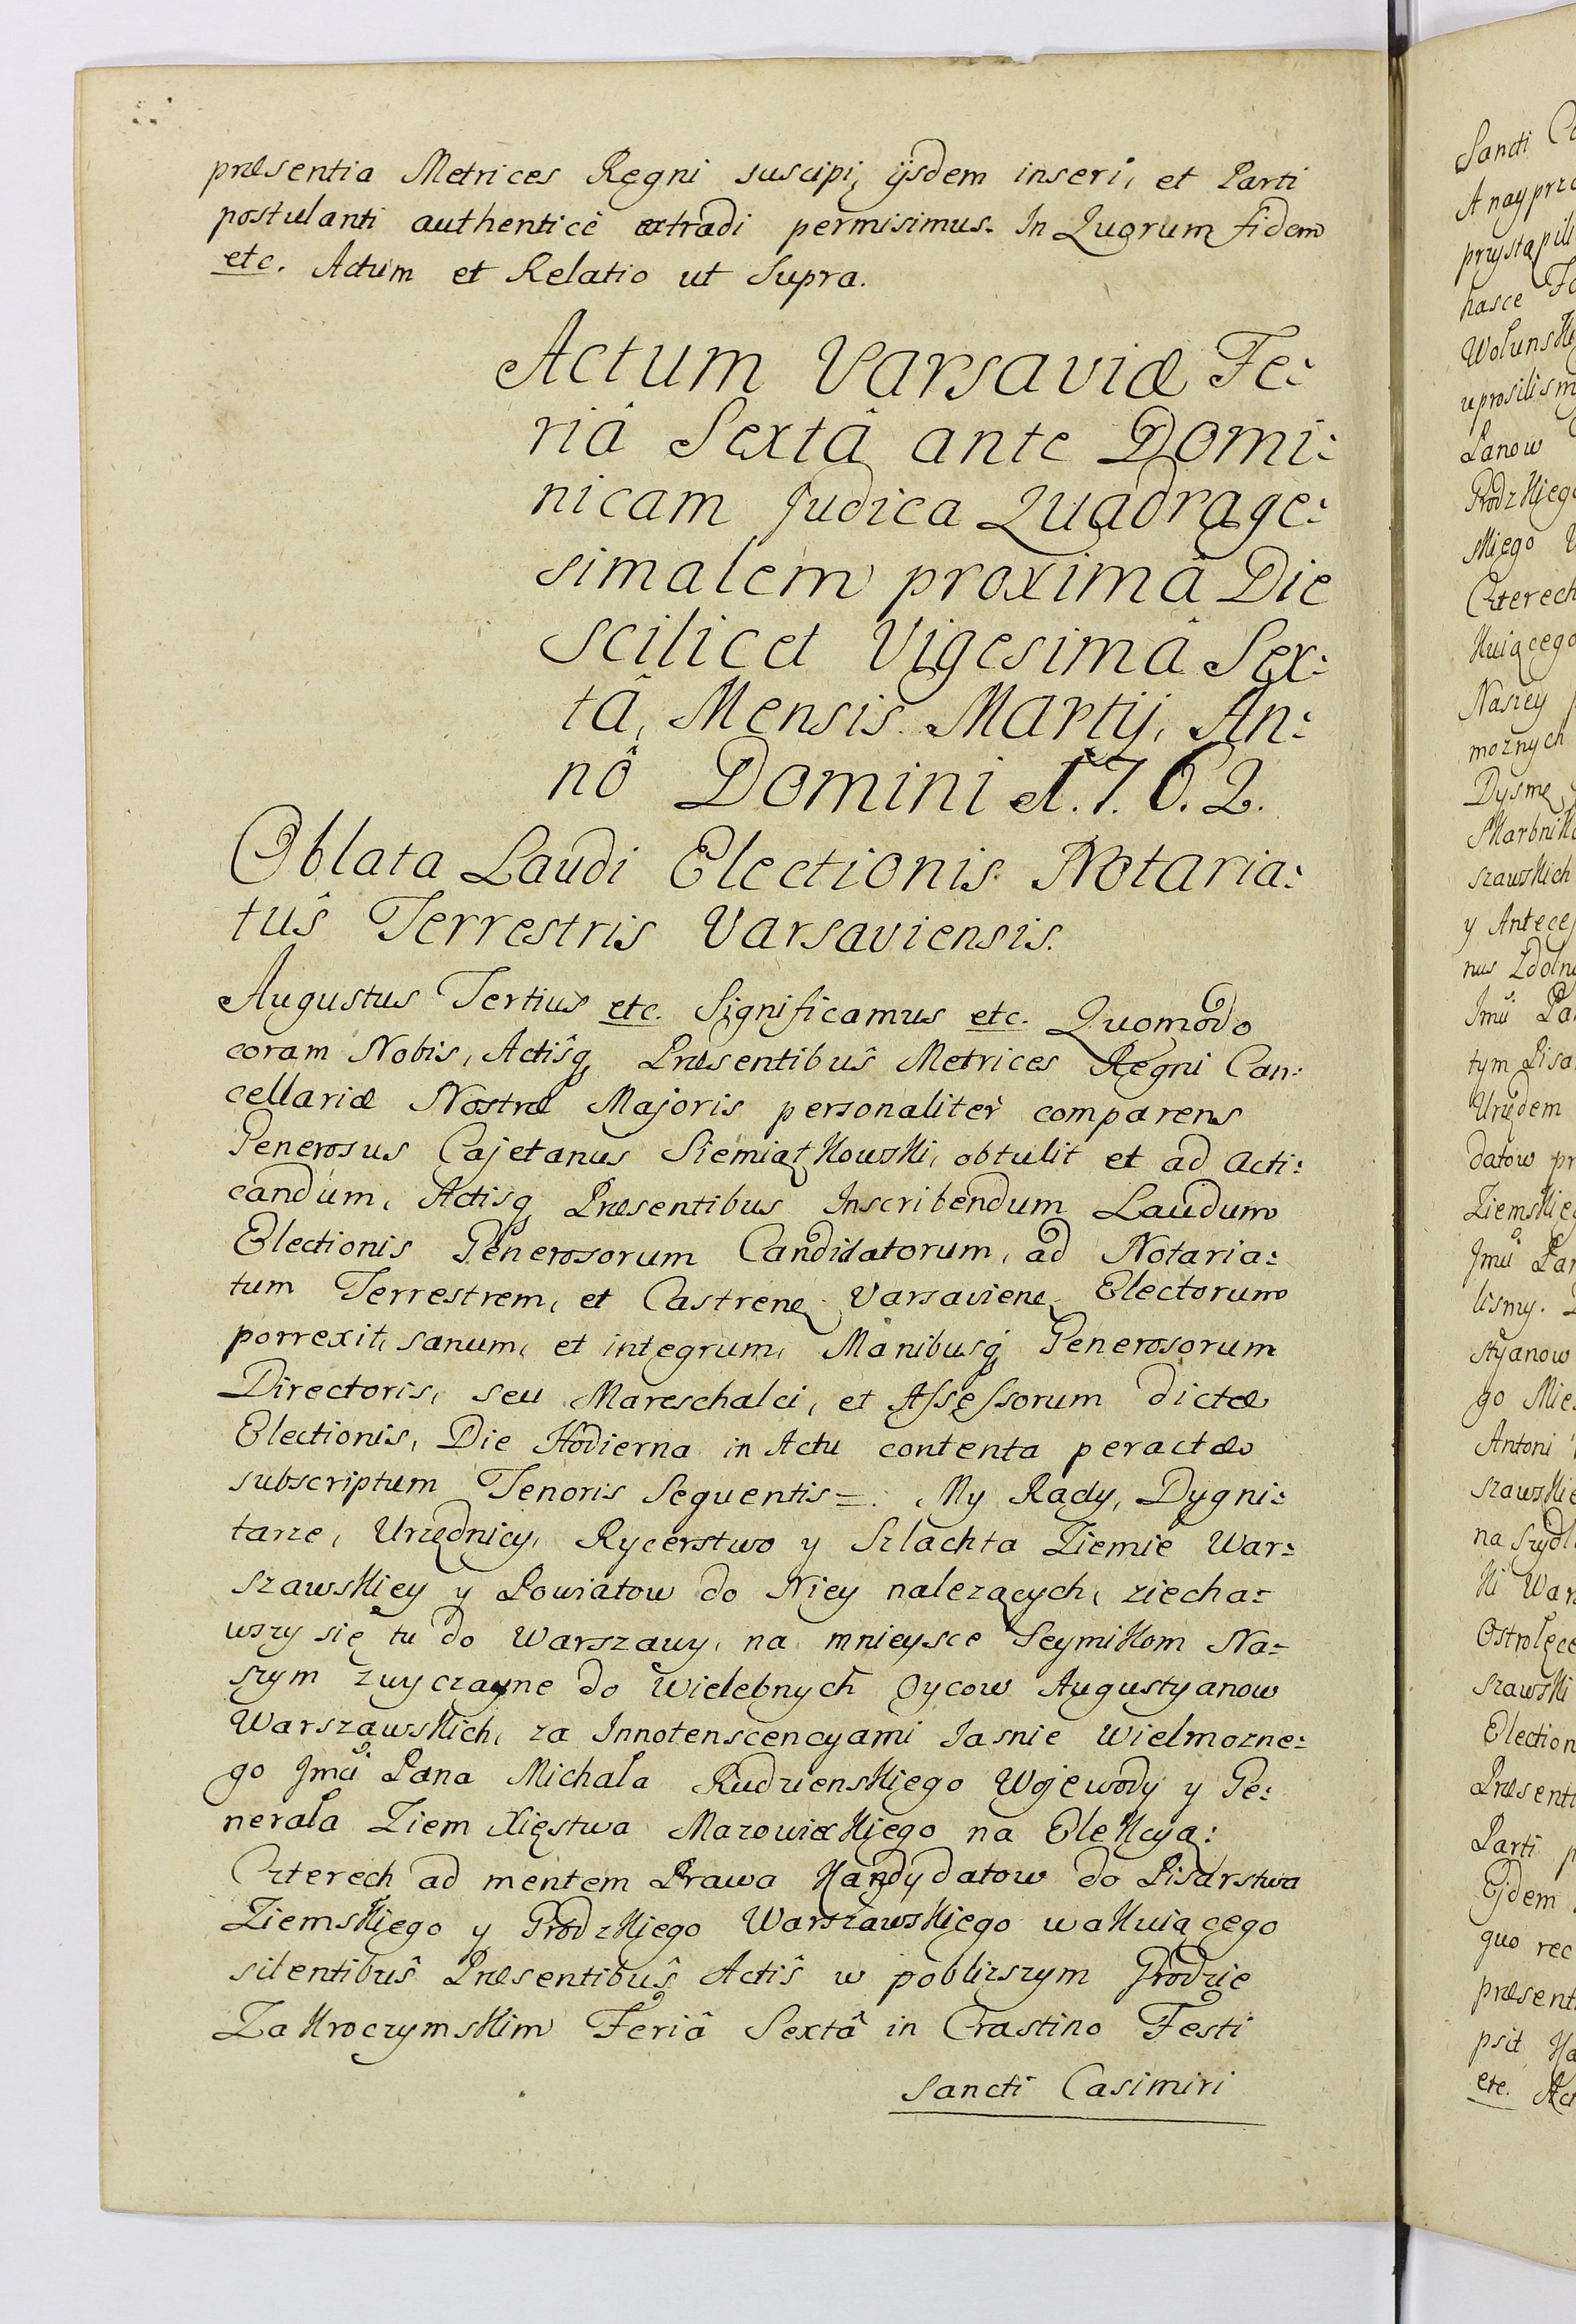 præsentia Metrices Regni suscipi, ijsdem inseri, et Parti
postulanti authenticè extradi permisimus. In Quorum fidem
etc. Actum et Relatio ut Supra.
Actum Varsaviæ Fe:
riâ Sextâ ante Domi:
nicam Judica Quadrage:
simalem proximâ Die
scilicet Vigesimâ Sex:
tâ, Mensis Martij, An:
nô Domini 1.7.6.2.
Oblata Laudi Electionis Notaria:
tûs Terrestris Varsaviensis.
Augustus Tertius etc. Significamus etc. Quomodo
coram Nobis, Actisq, Præsentibûs Metrices Regni Can:
cellariæ Nostræ Majoris personaliter comparens
Generosus Cajetanus Siemiątkowski, obtulit et ad acti:
candum, Actisq Præsentibus Inscribendum Laudum
Electionis Generosorum Candidatorum, ad Notaria:
tum Terrestrem, et Castreneq Varsavieneq Electorum
porrexit, sanum, et integrum, Manibusq Generosorum
Directoris, seu Mareschalci, et Assessorum dictæ
Electionis, Die Hodierna in Actu contenta peractæ
subscriptum Tenoris Sequentis =. My Rady, Dygni:
tarze, Urzędnicy, Rycerstwo y Szlachta Ziemie War:
szawskiey y Powiatow do Niey nalezących, ziecha=
wszy się tu do Warszawy, na mnieysce Seymikom Na=
szym zwyczayne do Wielebnych Oycow Augustyanow
Warszawskich, za Innotenscencyami Jasnie Wielmozne:
go Jmci Pana Michała Rudzienskiego Wojewody y Ge:
nerała Ziem Xięstwa Mazowieckiego na Elekcyą:
Czterech ad mentem Prawa Kandydatow do Pisarstwa
Ziemskiego y Grodzkiego Warszawskiego wakuiącego
silentibûs Præsentibûs Actîs w poblizszym Grodzie
Zakroczymskim Feriâ Sextâ in Crastino Festi
Sancti Casimiri
Sancti
przystąpili
hasce
uprosilism
Panow
Czterech
kuiącego
Naszey
moznych
Dysmę
szawskich
tym
Urzędem
datow
lismy.
styanow
go
Antoni
na
ki
szawski
Election
Parti
Ejdem
quo rec
psit
etc.